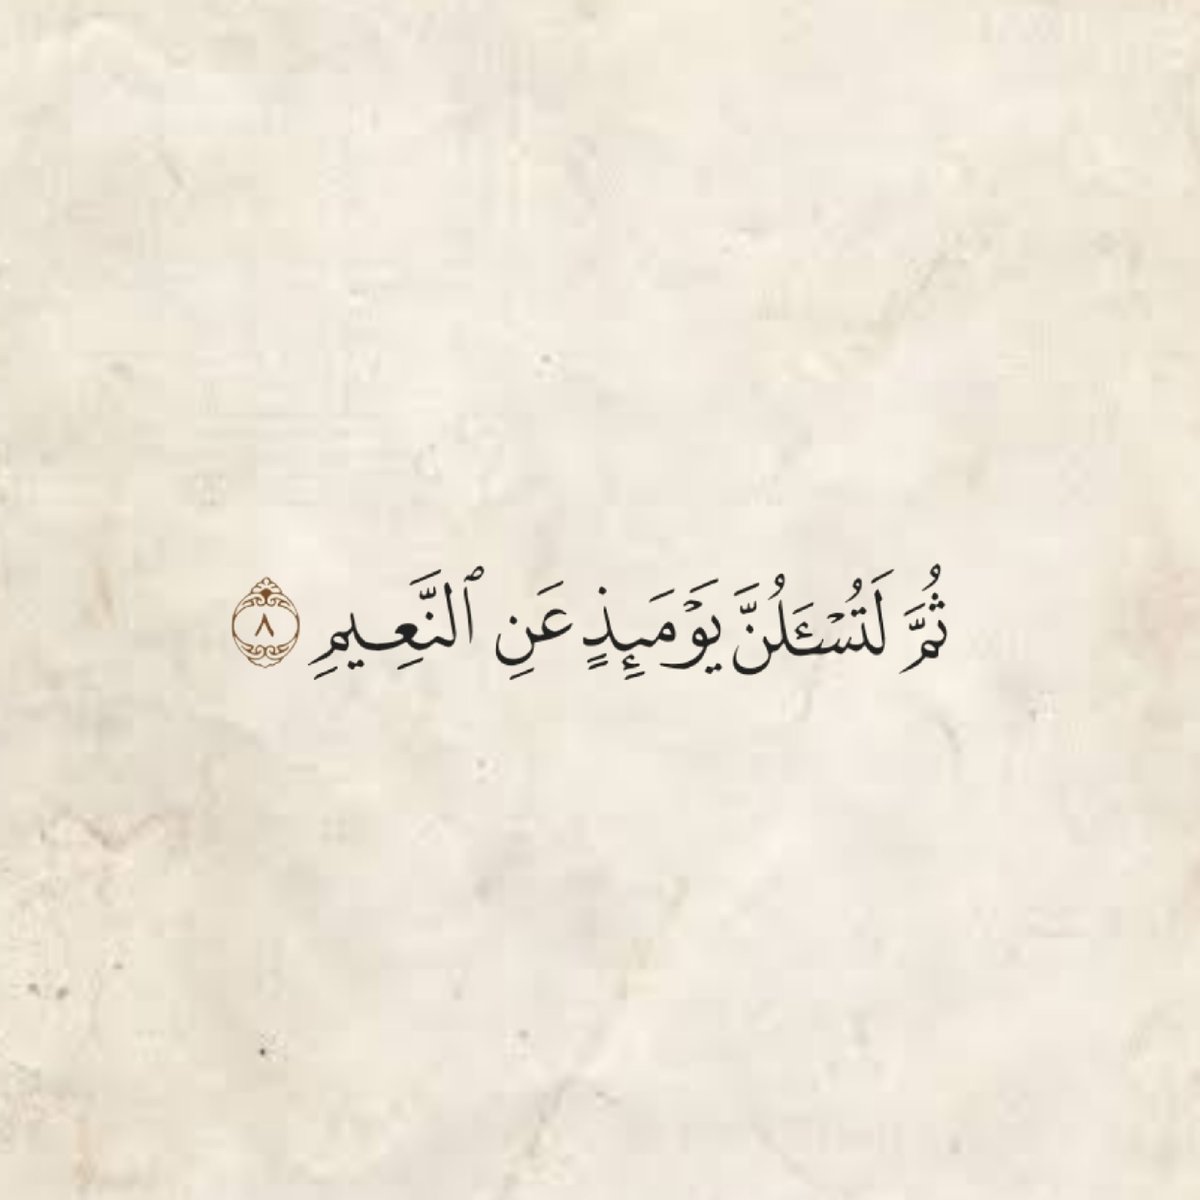 ثُمَّ لَتُسْـَٔلُنَّ يَوْمَئِذٍ عَنِ ٱلنَّعِيمِ ٨